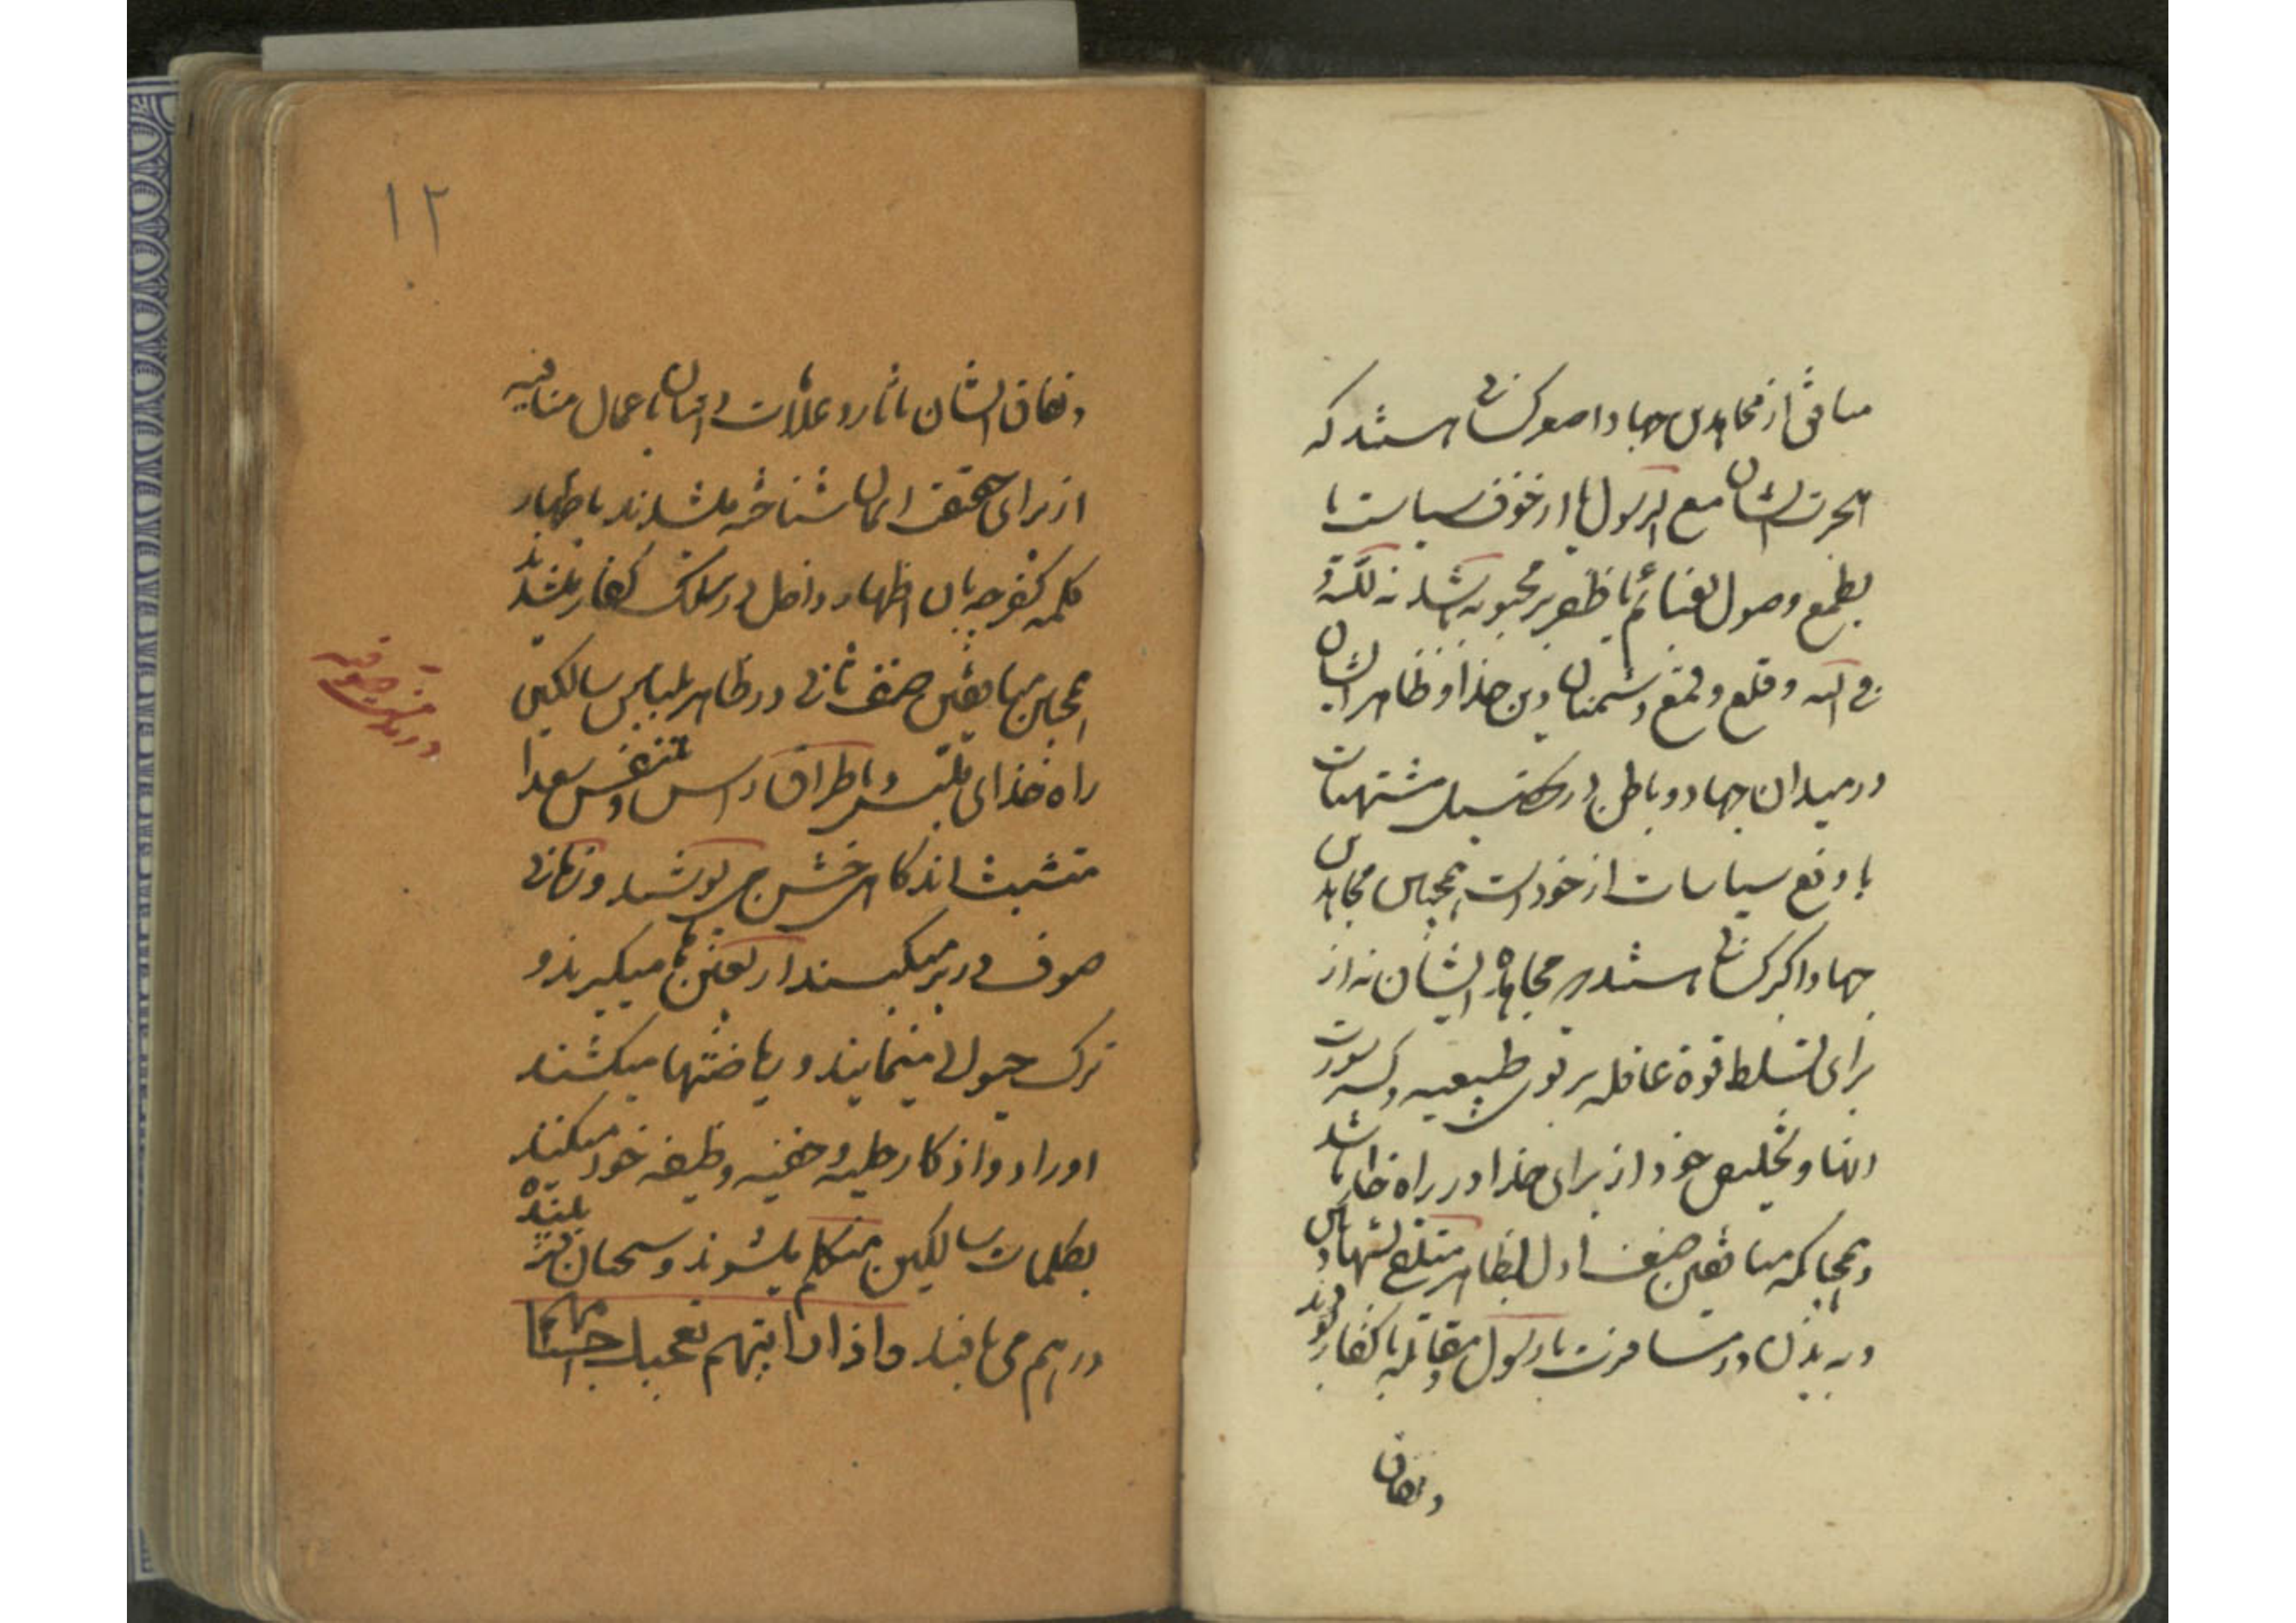 منافق از مجاهدین جهاد اصغر کسانی هستند که
هجرت ایشان مع الرسول یا از خوف سیاست یا
بطمع وصول بغنائم یا ظفر بر محبوبه باشد نه للّه و
فی اللّه و قلع و قمع دشمنان دین خدا و ظاهر ایشان
در میدان جهاد و باطن در تحصیل مشتهیات
یا دفع سیاسات از خود است همچنین مجاهدین
جهاد اکبر کسانی هستند که مجاهده ایشان نه از
برای تسلط قوة عاقله بر قوی طبیعیه و کسر سورت
اینها و تخلیص خود از برای خدا در راه خدا باشد
و همچنانکه منافقین صنف اول بظاهر متلفظ بشهادتین
و به بدن در مسافرت با رسول و مقاتله با کفار بودند
و نفاق
۱۲
و نفاق ایشان بآثار و علامات و اتیان باعمال منافیه
از برای حقیقت ایمان شناخته میشدند باظهار
کلمه کفر چه بآن اظهار داخل در سلک کفار میشدند
همچنین منافقین صنف ثانی در ظاهر بلباس سالکین
راه خدای ملتبس و باطراق رأس و تنفس صعدا
متشبث اند گاهی خشن می پوشند و زمانی
صوف در بر میکنند اربعین ها میگیرند و
ترک حیوانی مینمایند و ریاضتها میکشند
اوراد و اذکار جلیه و خفیه وظیفه خود میکنند
بکلمات سالکین متکلم میشوند و سخنان فریبنده
در هم می بافند و اذا رایتهم تعجبک اجسامهم
در مذمت صوفیه